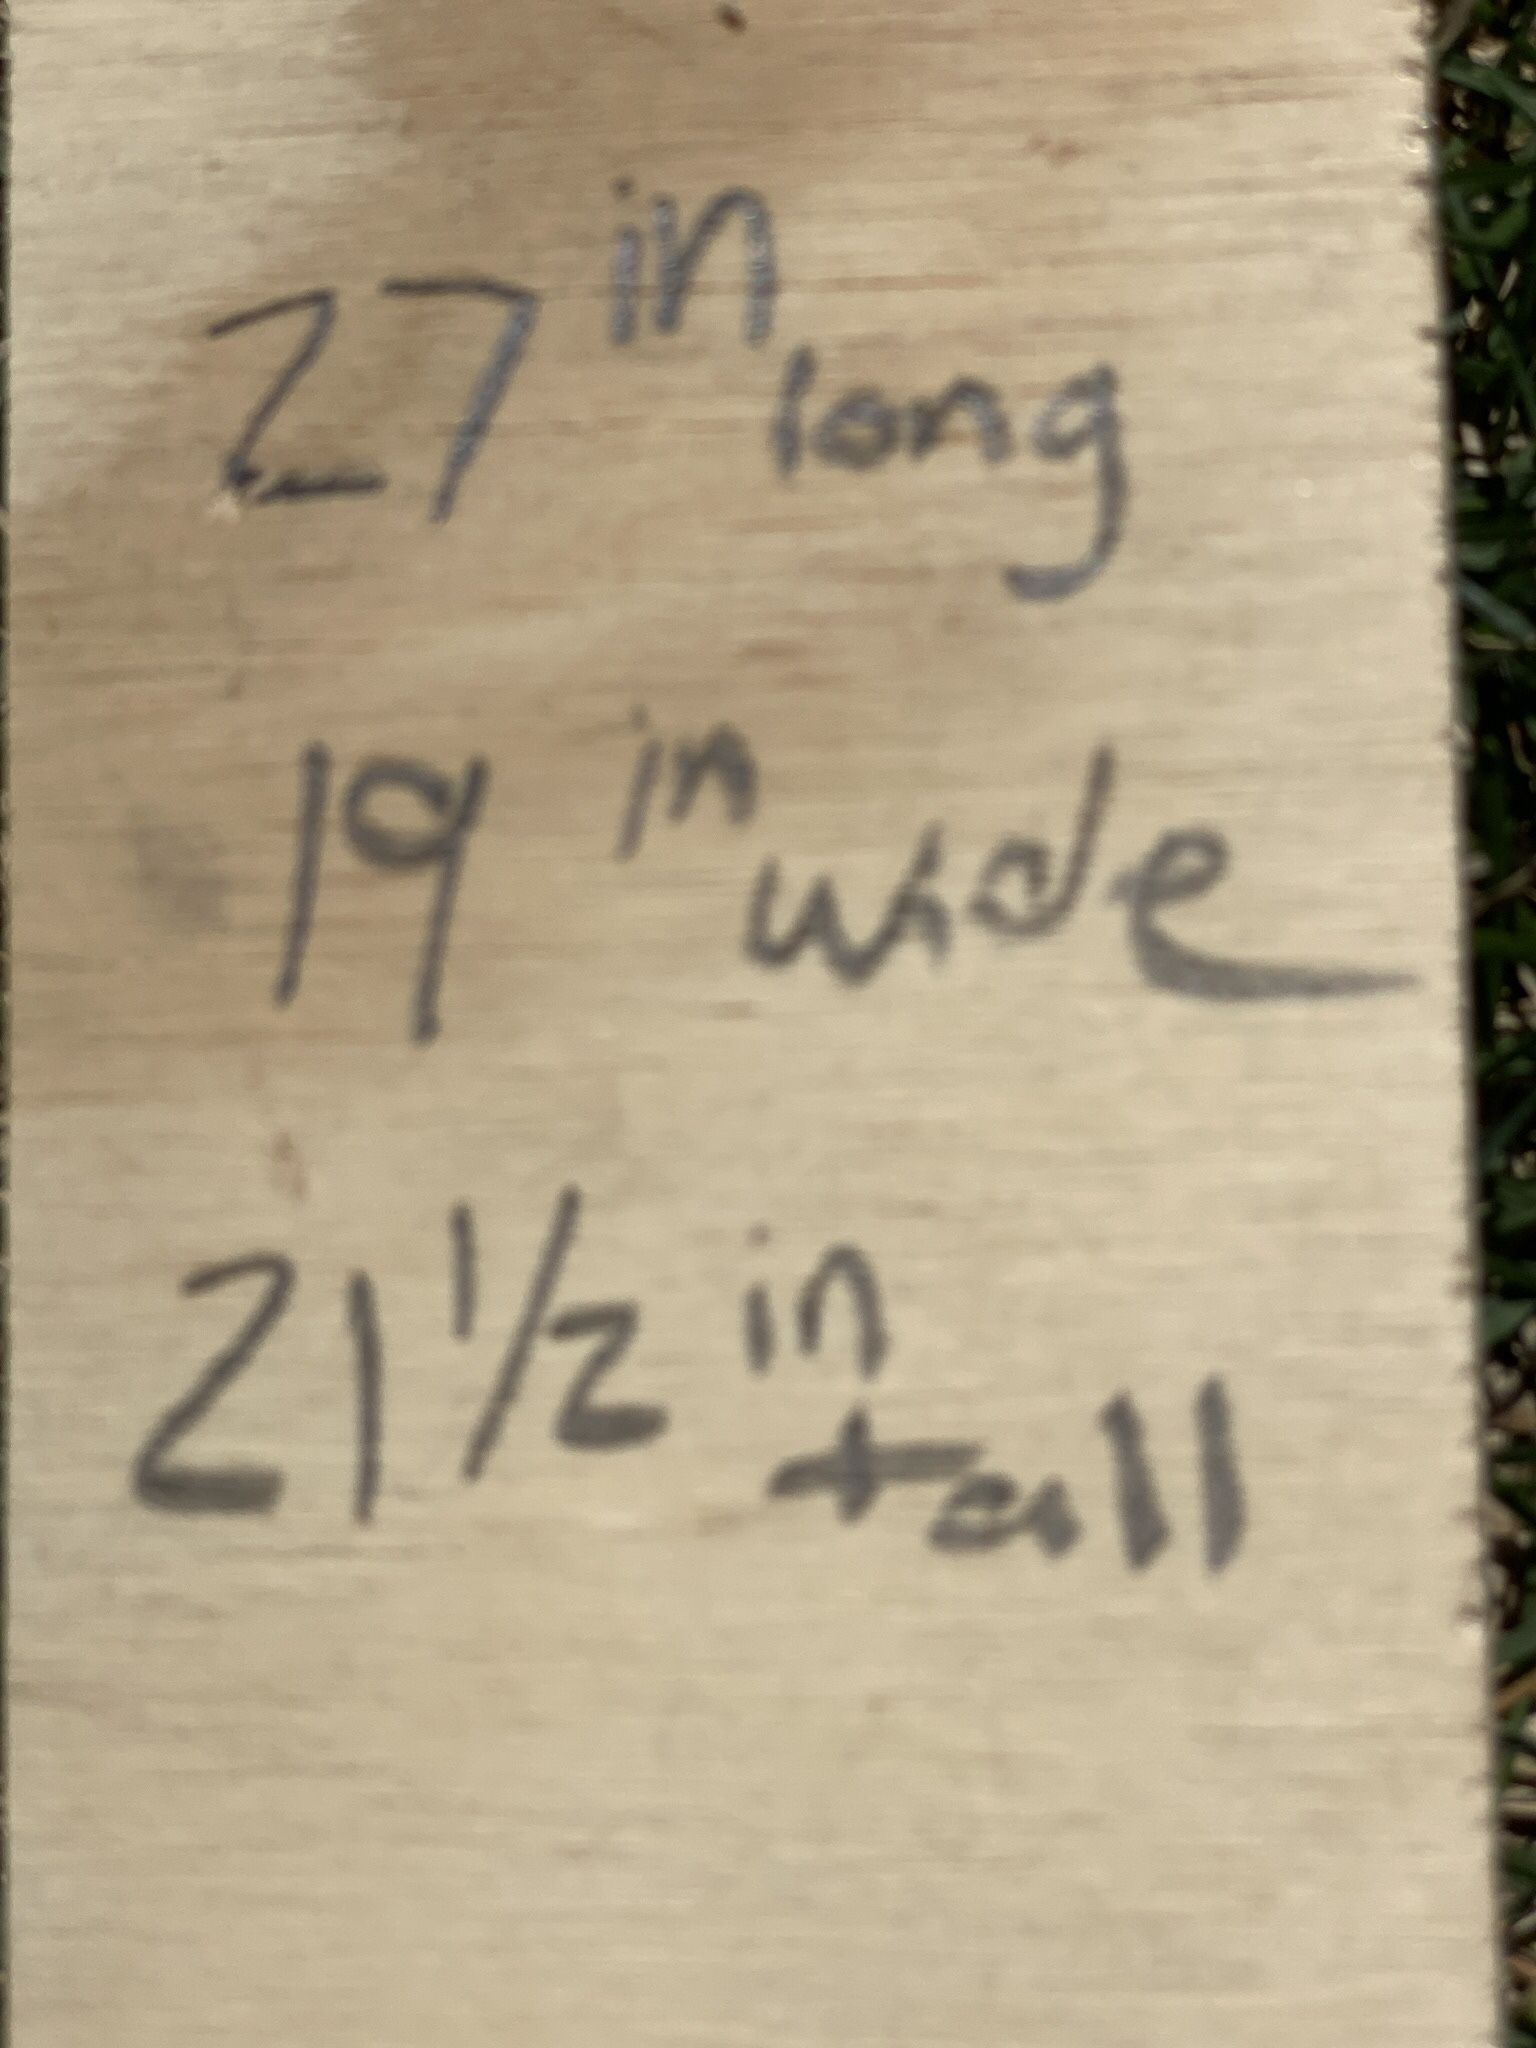 27 in long
19 in wide
21 1/2 in tall